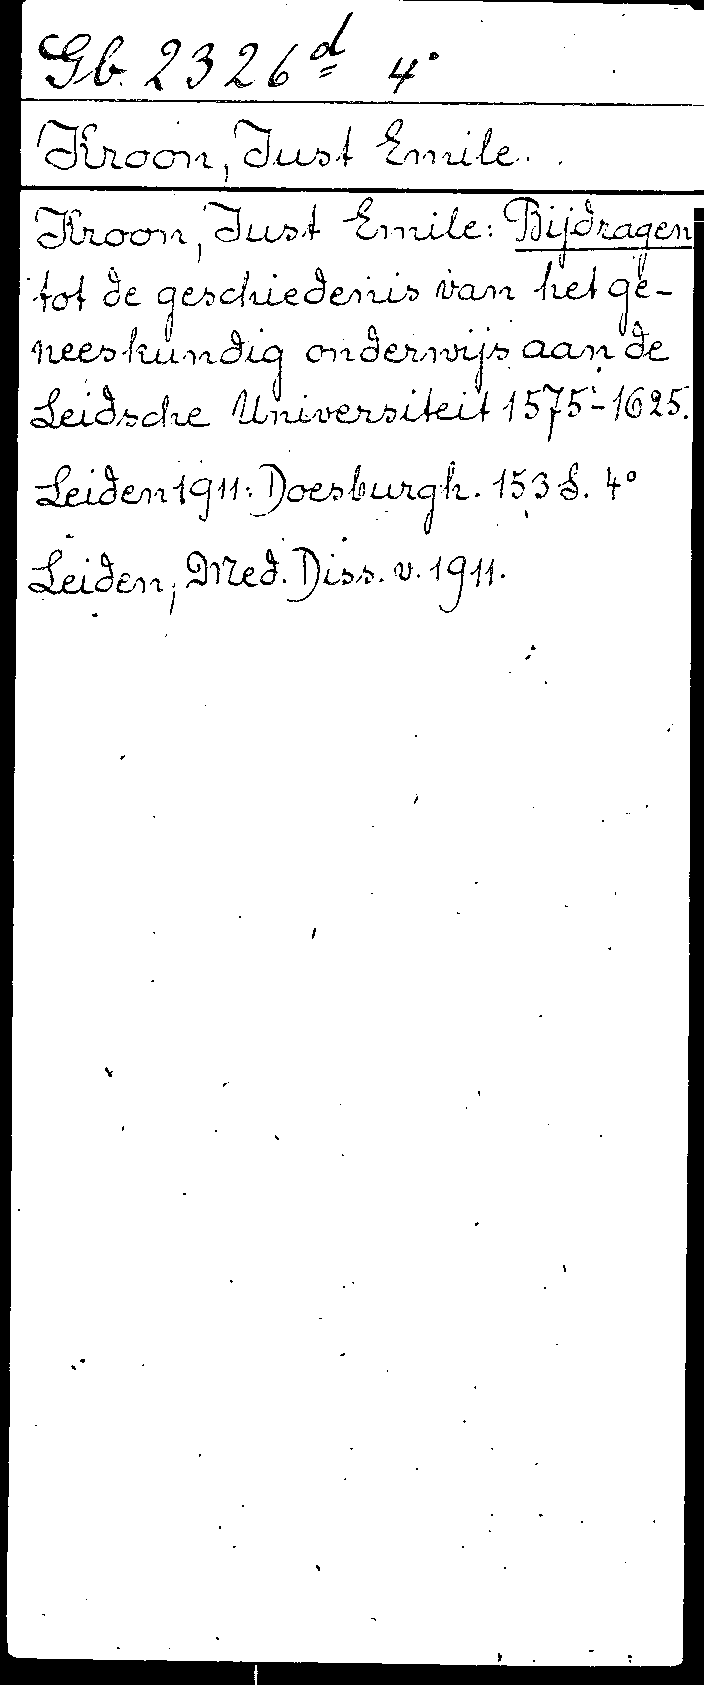 Gb. 2326d 4°
Kroon, Just Emile.
Kroon, Just Emile: Bijdragen
tot de geschiedenis van het ge-
neeskundig onderwijs aan de
Leidsche Universiteit 1575-1625.
Leiden 1911: Doesburgh. 153 S. 4°
Leiden, Med. Diss. v. 1911.